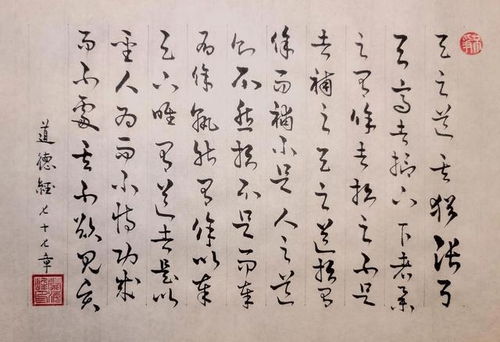 天之道其猶張弓
與高者抑之下者舉
之有餘者損之不足
者補之天之道損有
餘而補不足人之道
則不然損不足而奉
有餘孰能有餘以奉
天下唯有道者是以
聖人為而不恃功成
而不處其不欲見賢
道德經七十七章